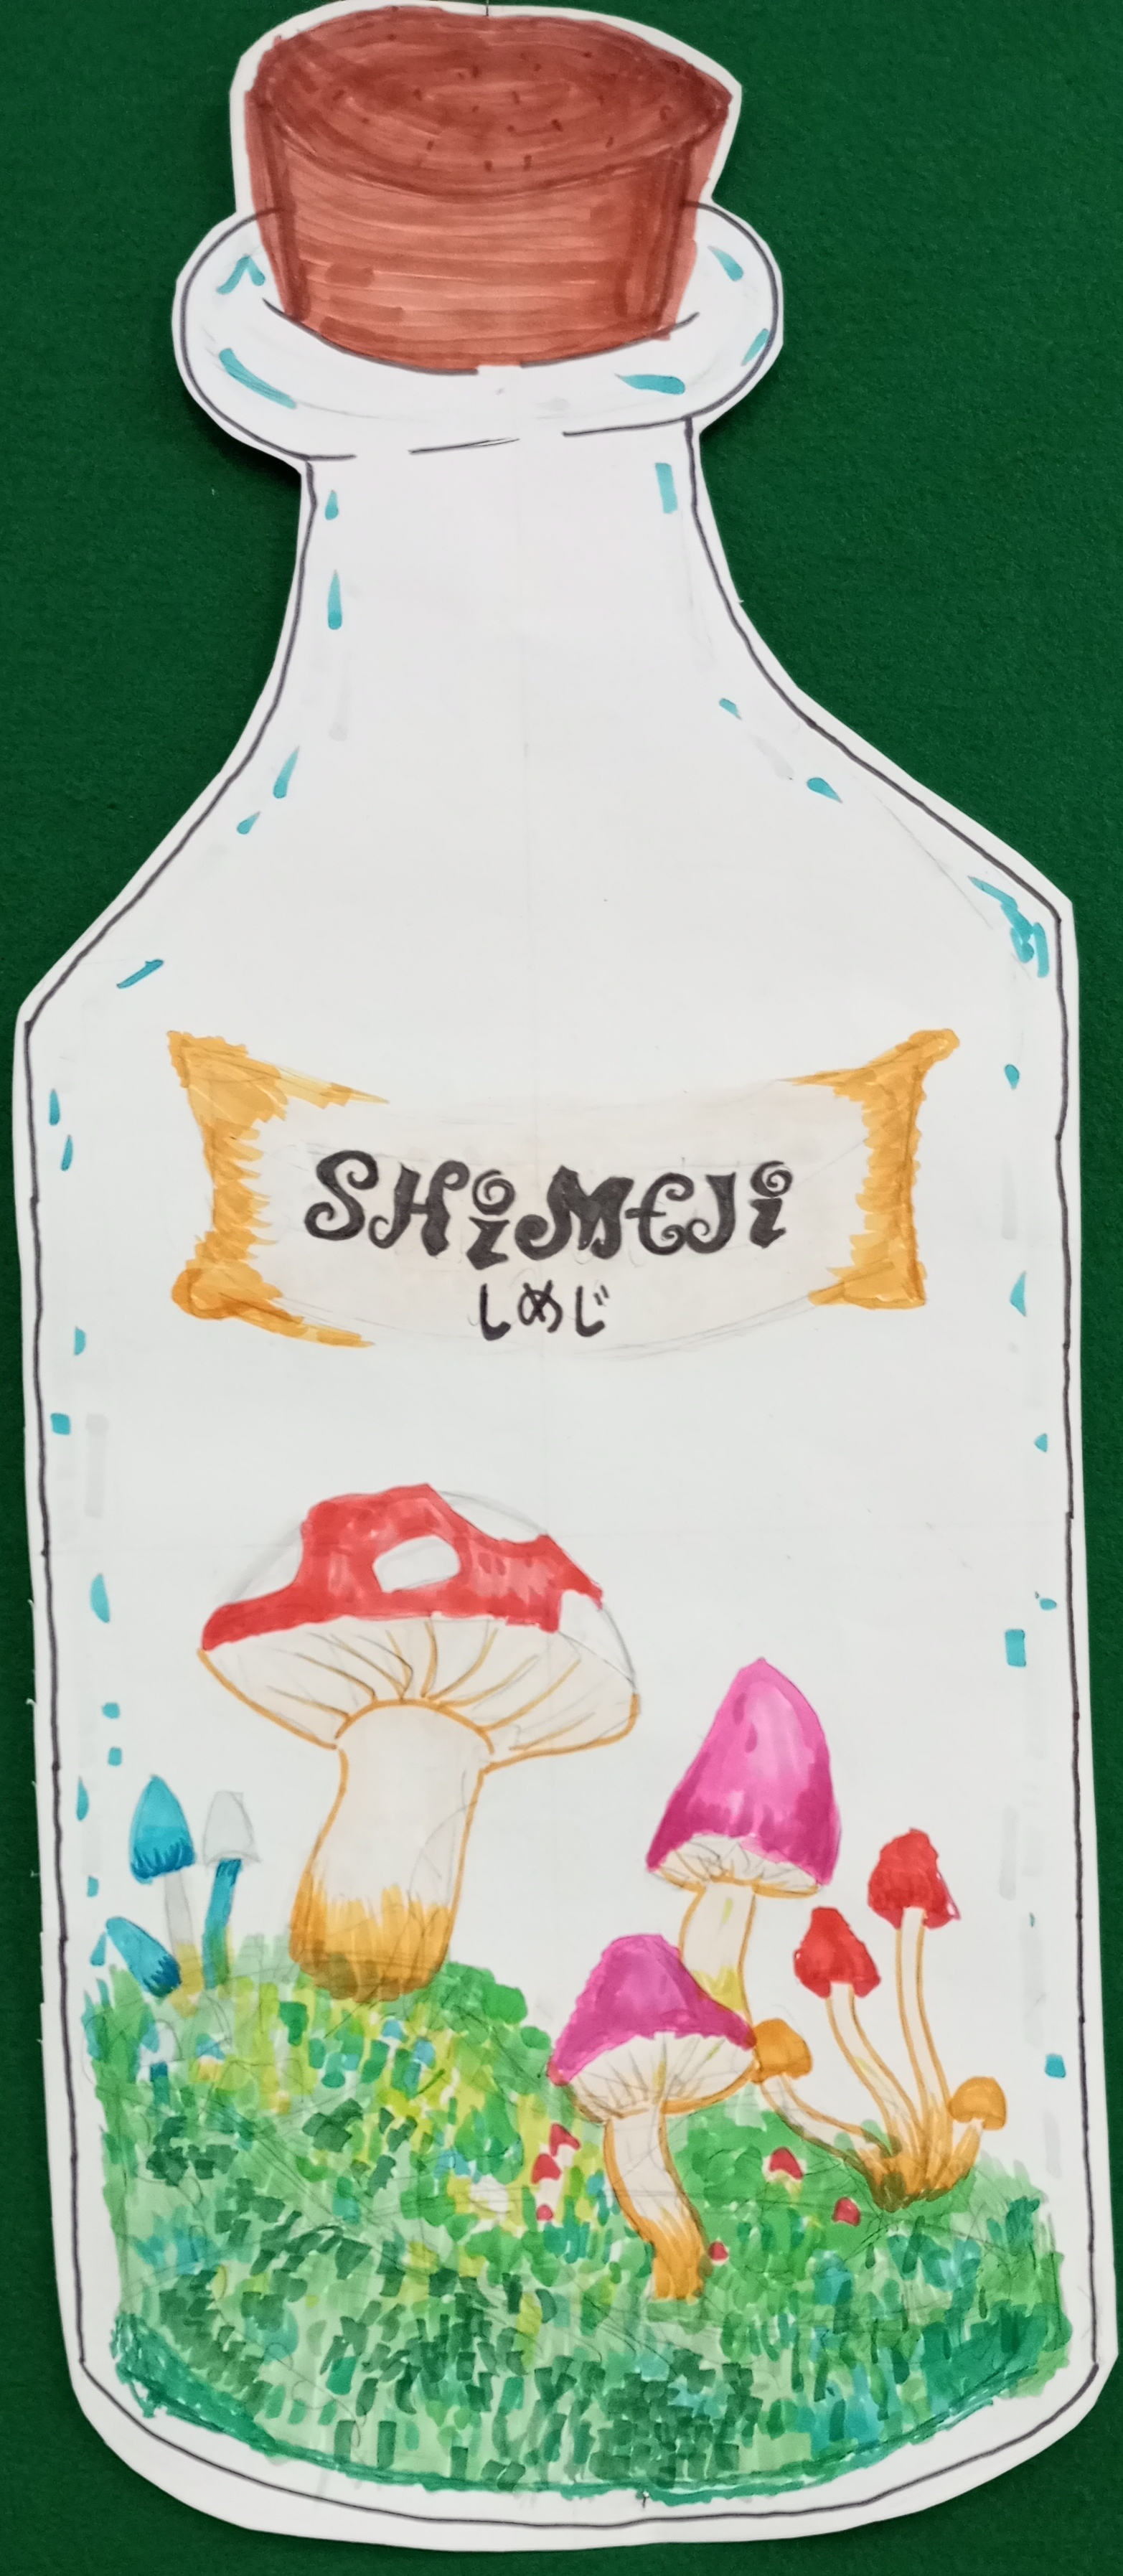 SHiMEJi
しめじ